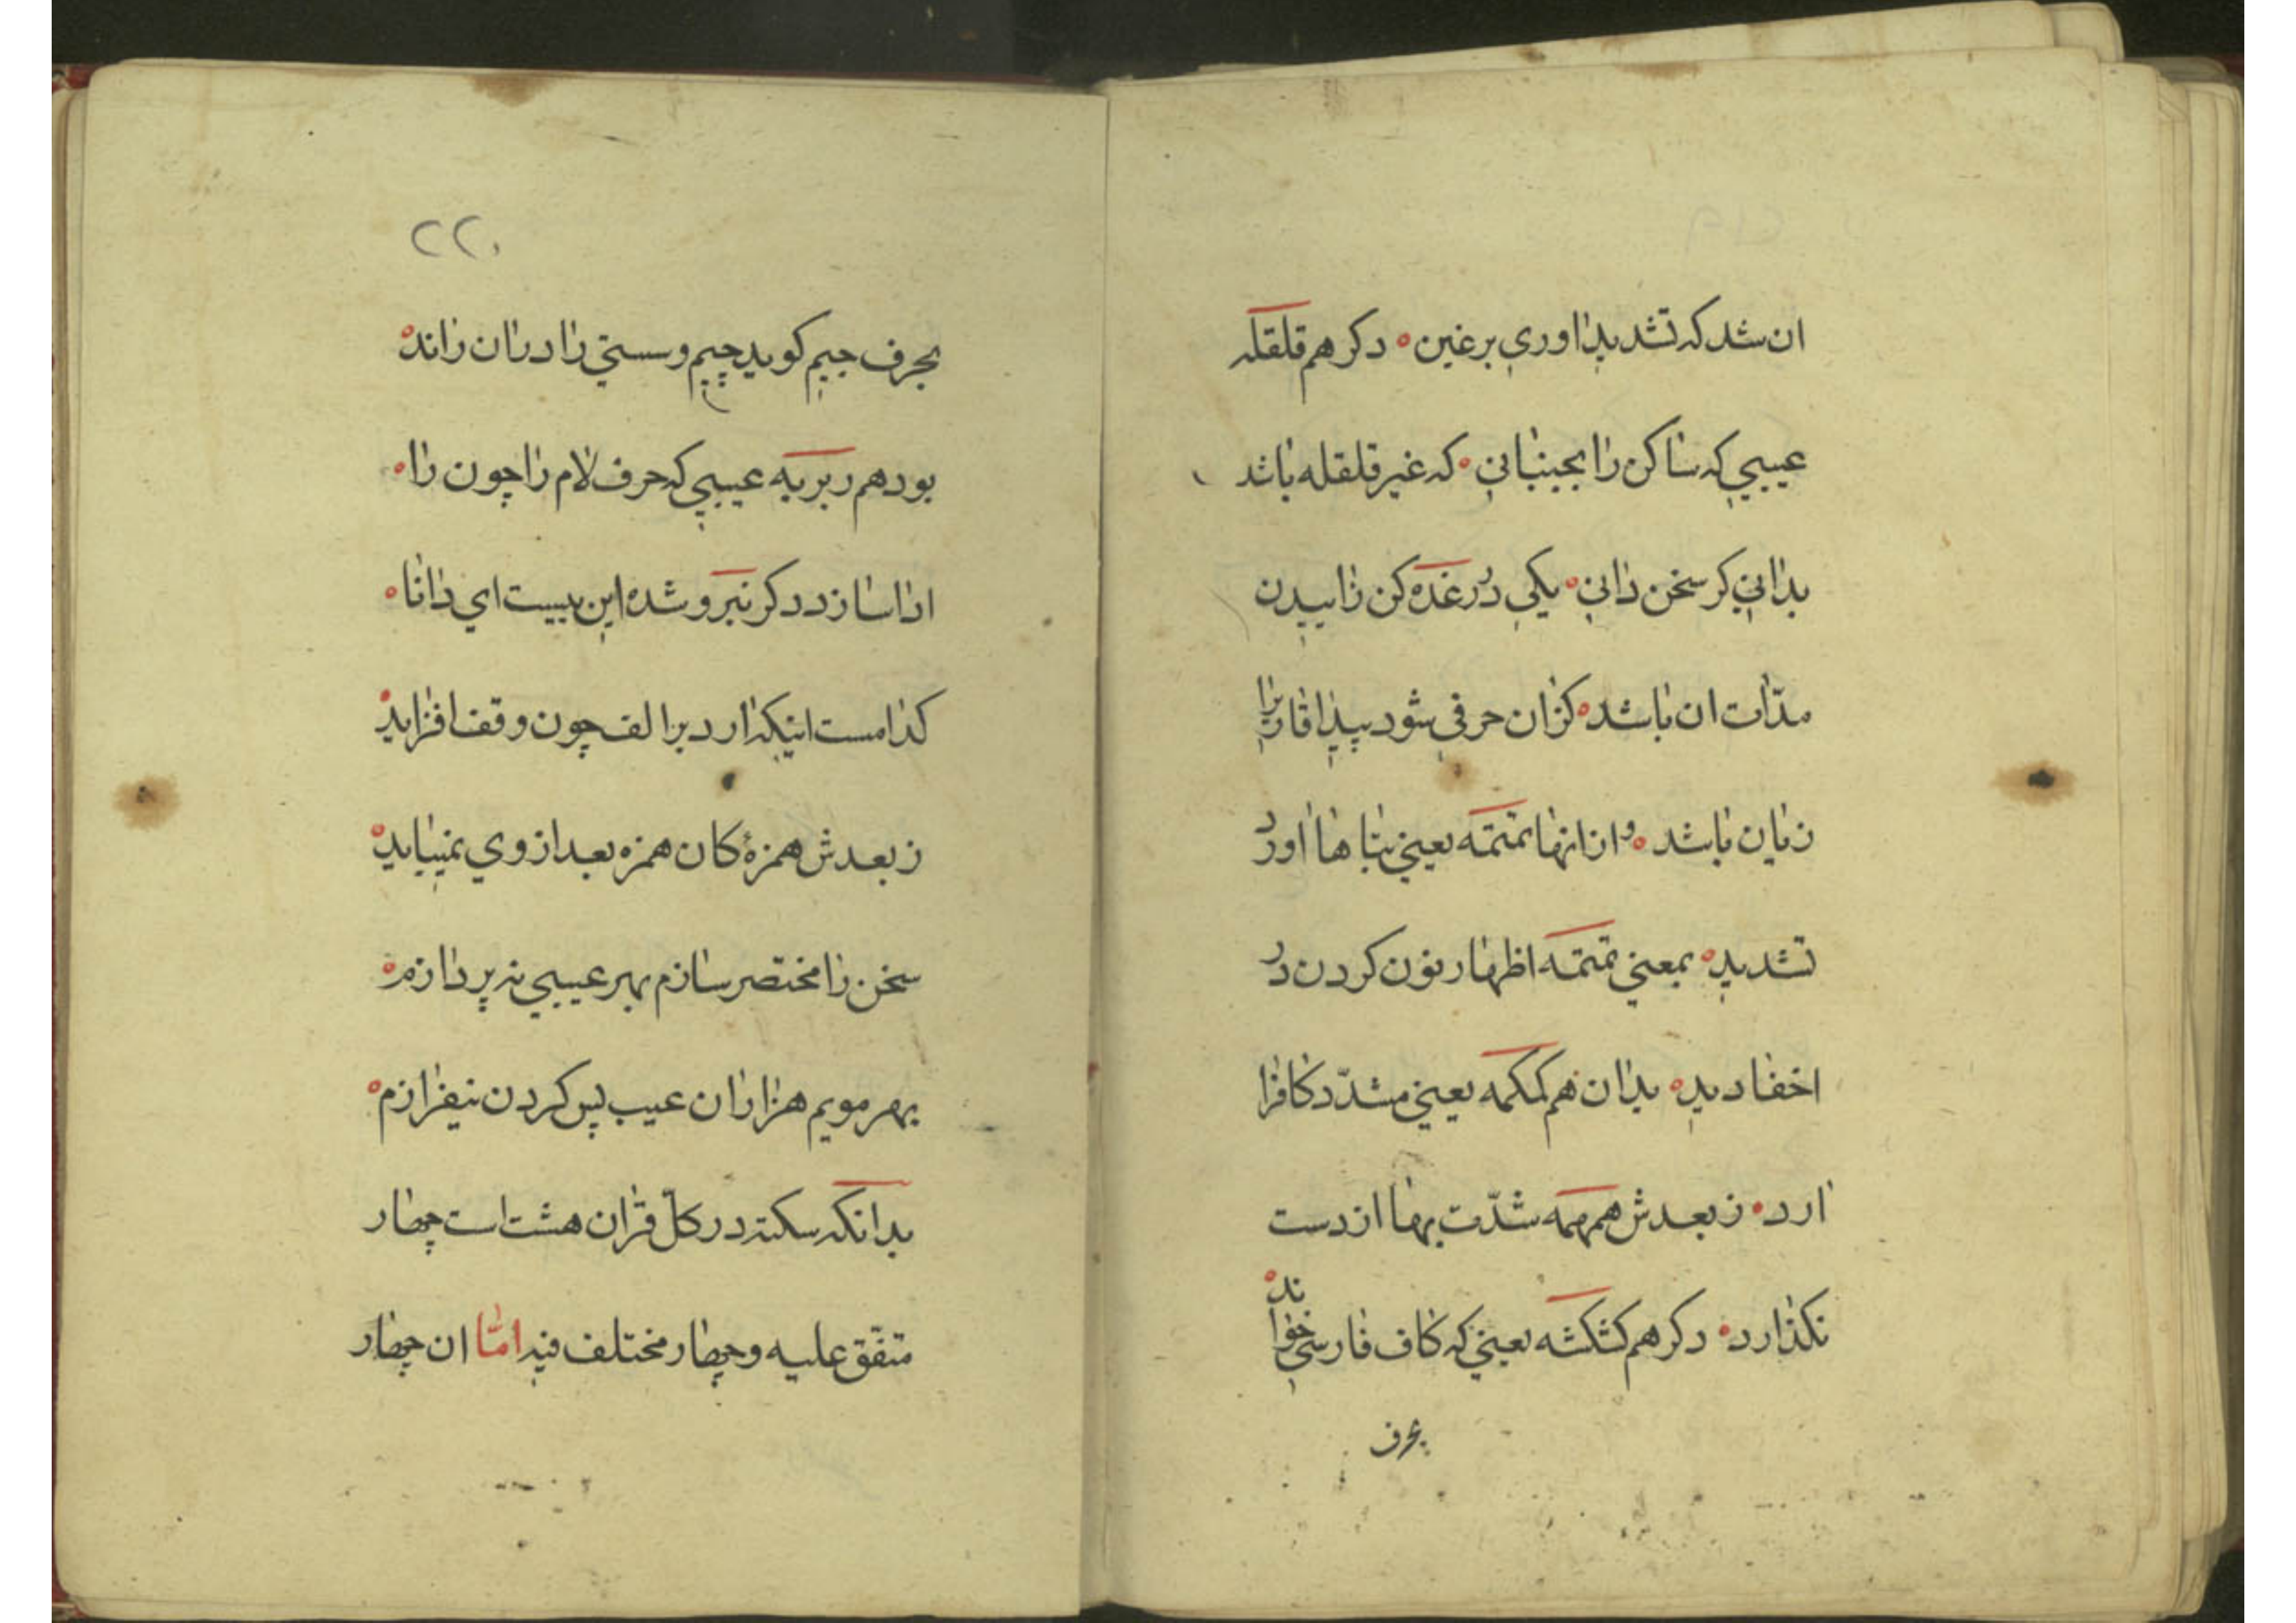 ان شد که تشدید اوری برغین ° دکر هم قلقله
عیبی که ساکن را بجنبانی ° که غیر قلقله باشد
بدانی کر سخن دانی ° یکی در غده کن زاییدن
مدّات ان باشد ° کزان حرفی شود پیدا قاری را
زیان باشد ° و از انها تمتمه یعنی بتاها اورد
تشدید ° بمعنی تمتمه اظهار نون کردن در
اخفا دید ° بدان هم کمکمه یعنی مشدّد کاف را
ارد ° ز بعدش همهمه شدّت بها از دست
نکذارد ° دکر هم کشکشه یعنی که کاف فارسی خواند °
بحرف
۲۲۰
بحرف جیم کوید چیم و سستی را دران راند °
بود هم ربربه عیبی که حرف لام را چون را °
ادا سازد دکر نبر و شده این بیست ای دانا °
کدامست اینکه ارد بر الف چون وقف افزاید °
ز بعدش همزهٔ کان همزه بعد از وی نمیباید °
سخن را مختصر سازم بهر عیبی نه پردازم °
بهر مویم هزاران عیب پس کردن نیفرازم °
بدانکه سکته در کلّ قران هشت است چهار
متفّق علیه و چهار مختلف فیه امّا ان چهار